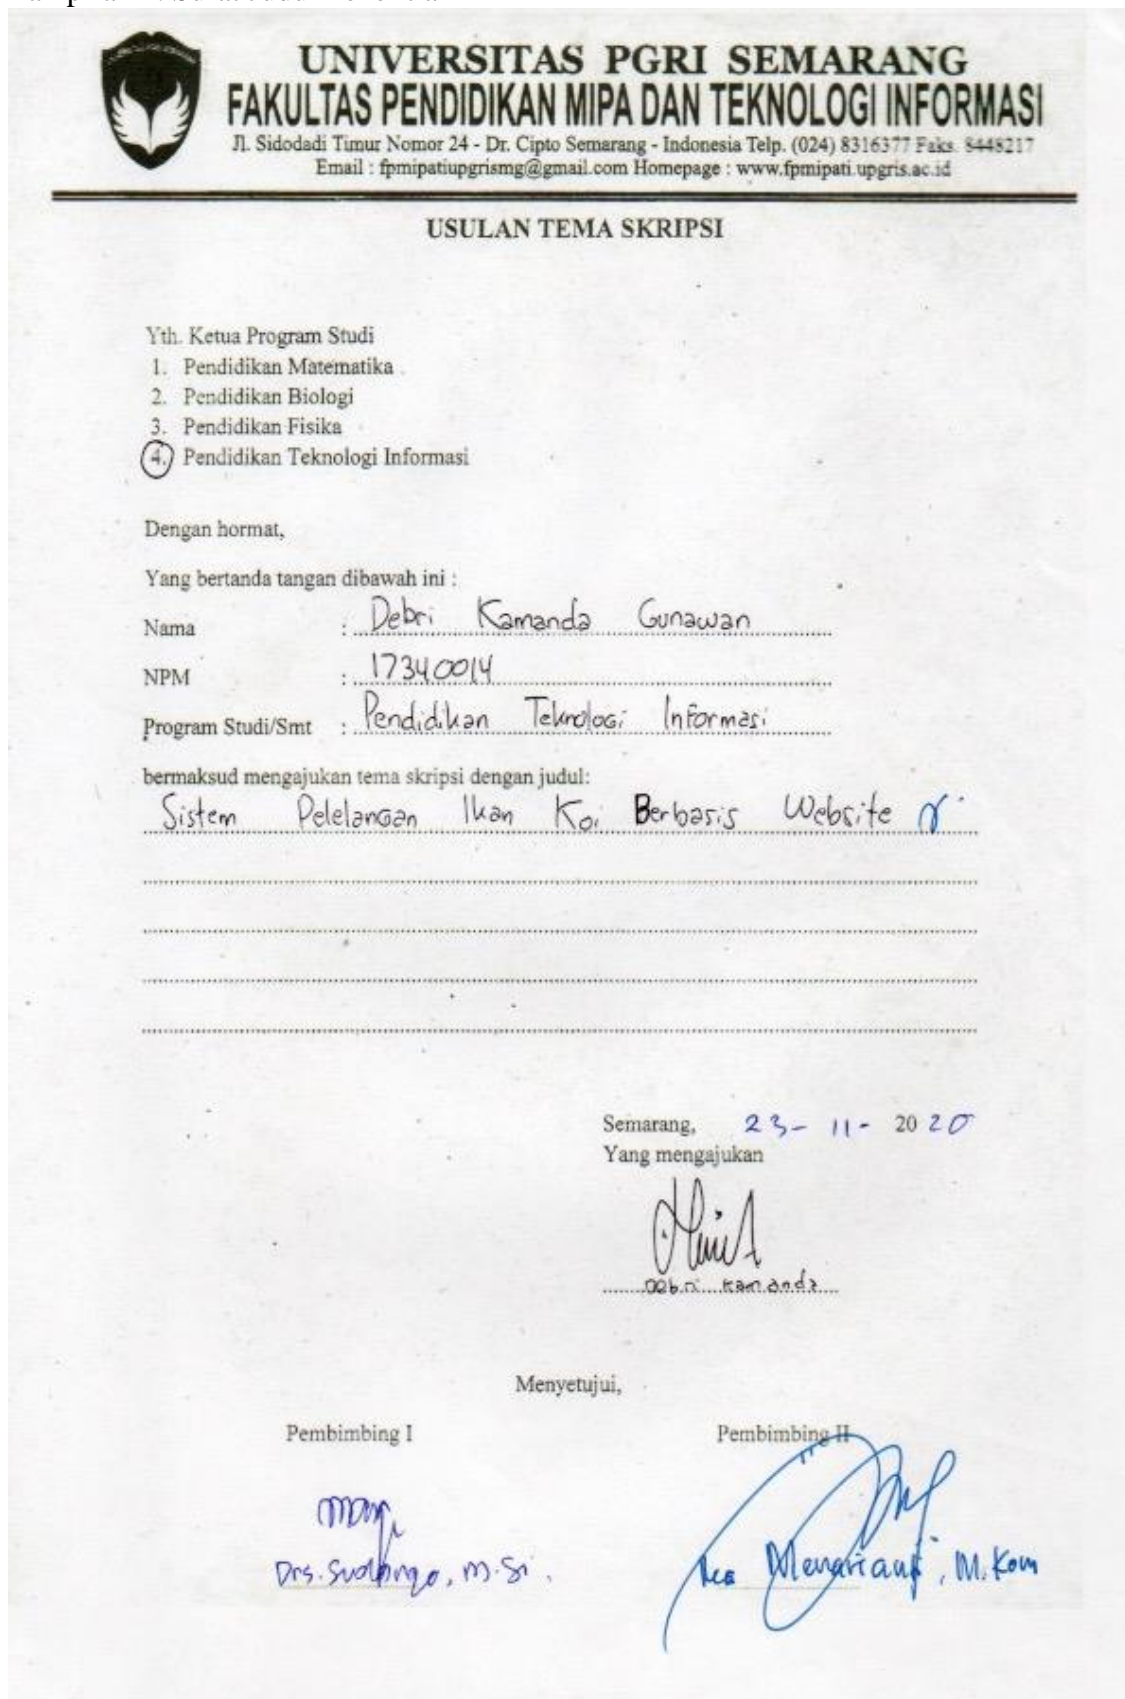 UNIVERSITAS PGRI SEMARANG
FAKULTAS PENDIDIKAN MIPA DAN TEKNOLOGI INFORMASI
Jl. Sidodadi Timur Nomor 24 - Dr. Cipto Semarang - Indonesia Telp. (024) 8316377 Faks. 8448217
Email : fpmipatiupgrismg@gmail.com Homepage : www.fpmipati.upgris.ac.id
USULAN TEMA SKRIPSI
Yth. Ketua Program Studi
1. Pendidikan Matematika
2. Pendidikan Biologi
3. Pendidikan Fisika
4. Pendidikan Teknologi Informasi
Dengan hormat,
Yang bertanda tangan dibawah ini :
Nama : Debri Kamanda Gunawan
NPM : 17340014
Program Studi/Smt : Pendidikan Teknologi Informasi
bermaksud mengajukan tema skripsi dengan judul:
Sistem Pelelangan Ikan Koi Berbasis Website
Semarang, 23-11-2020
Yang mengajukan
Debri Kamanda
Menyetujui,
Pembimbing I Pembimbing II
Drs. M.Si. M.Kom